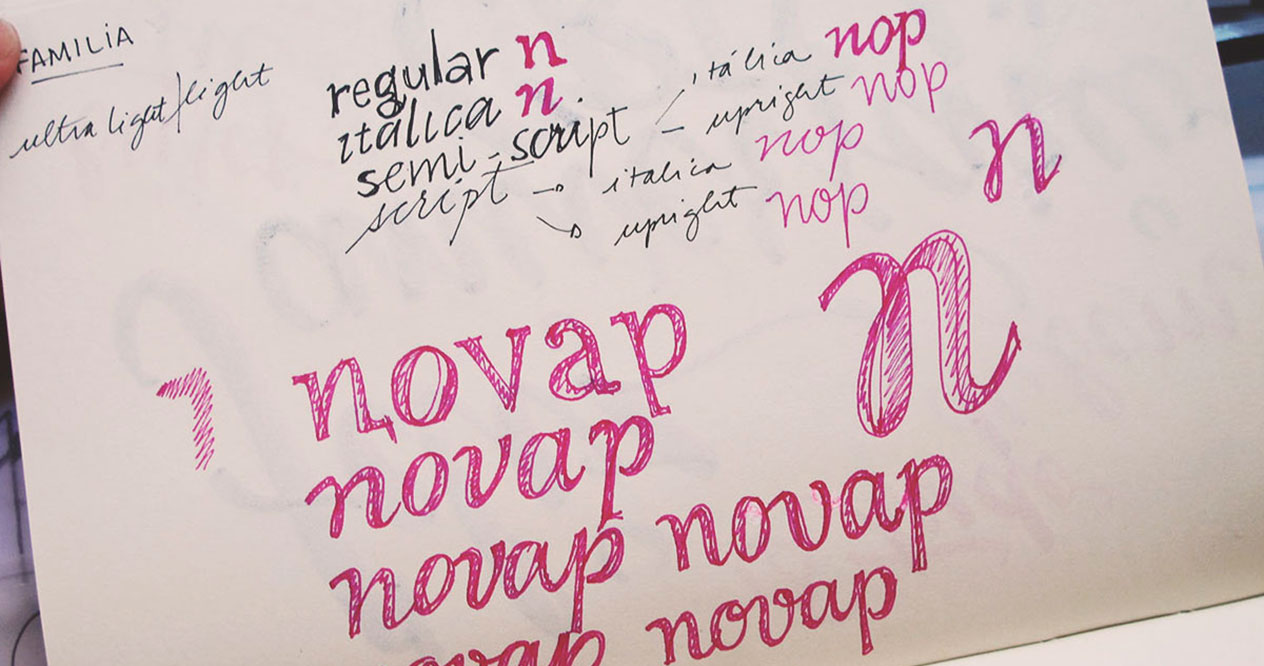 FAMILIA
ultra light/light
regular n
itálica n.
semi-script
itálica nop
upright nop
script
italica nop
upright nop
n
n
novap
novap
novap novap
novap